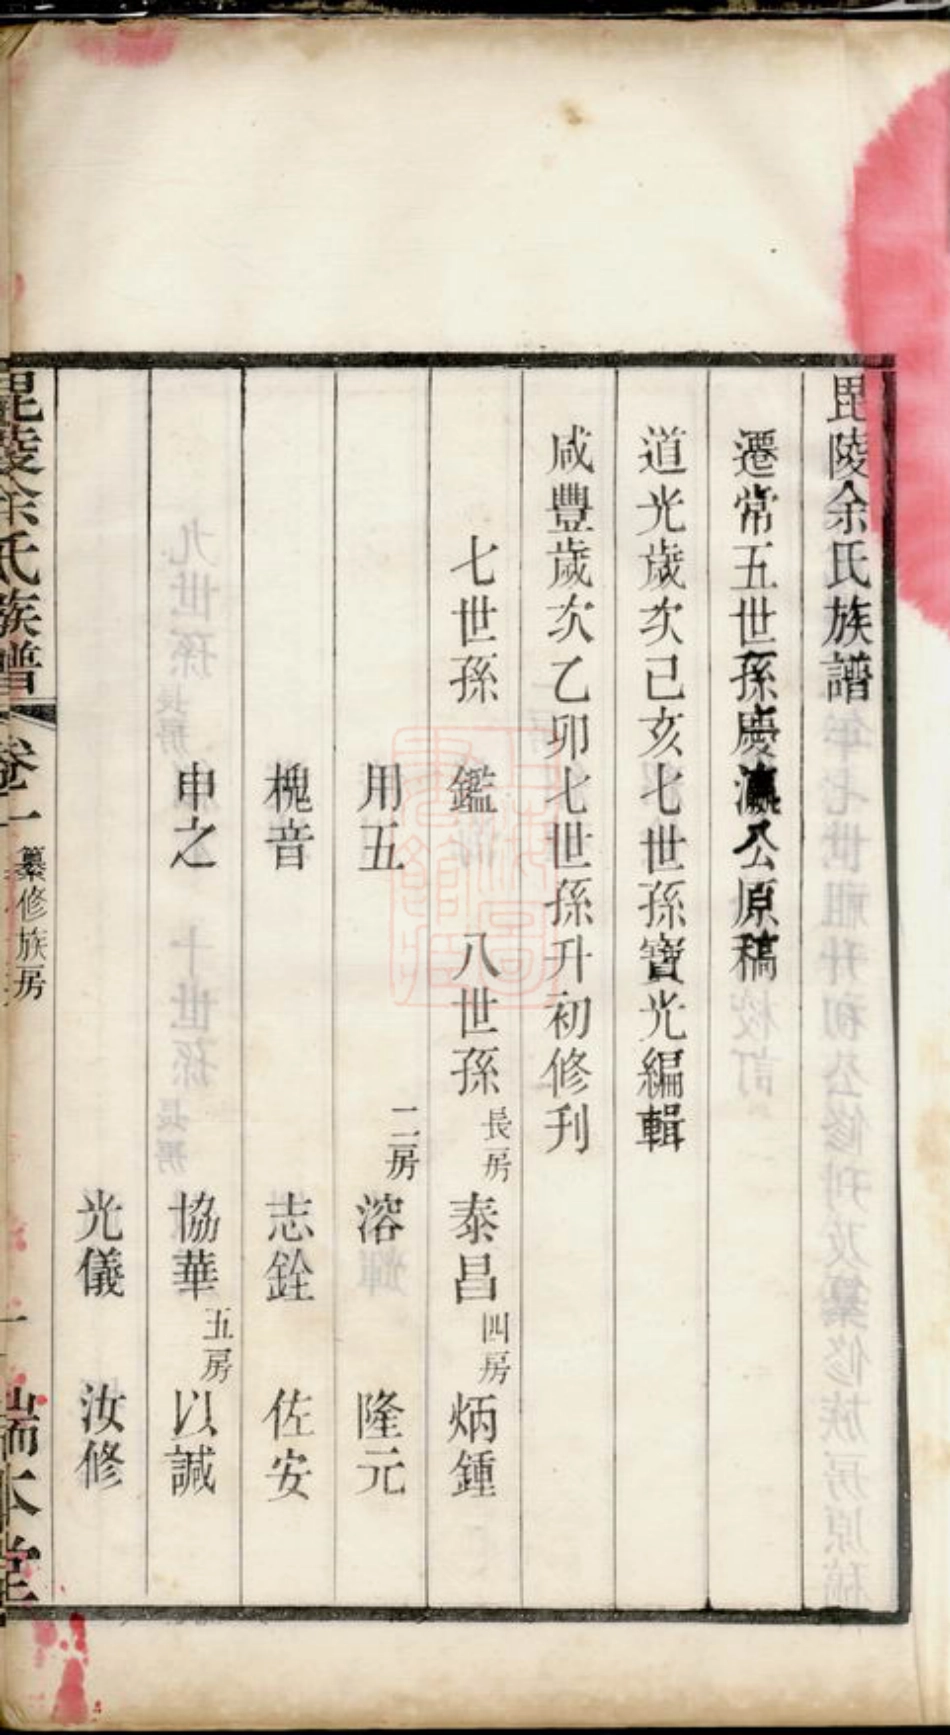 毘陵余氏族譜
遷常五世孫慶瀛公原稿
道光歲次己亥七世孫寶光編輯
咸豐歲次乙卯七世孫升初修刊
七世孫 鑑 八世孫 長房 泰昌 四房 炳鍾
用五 二房 溶 隆元
槐音 志銓 佐安
申之 協華 五房 以諴
光儀 汝修
毘陵余氏族譜 卷一 纂修族房 一 瑞本堂